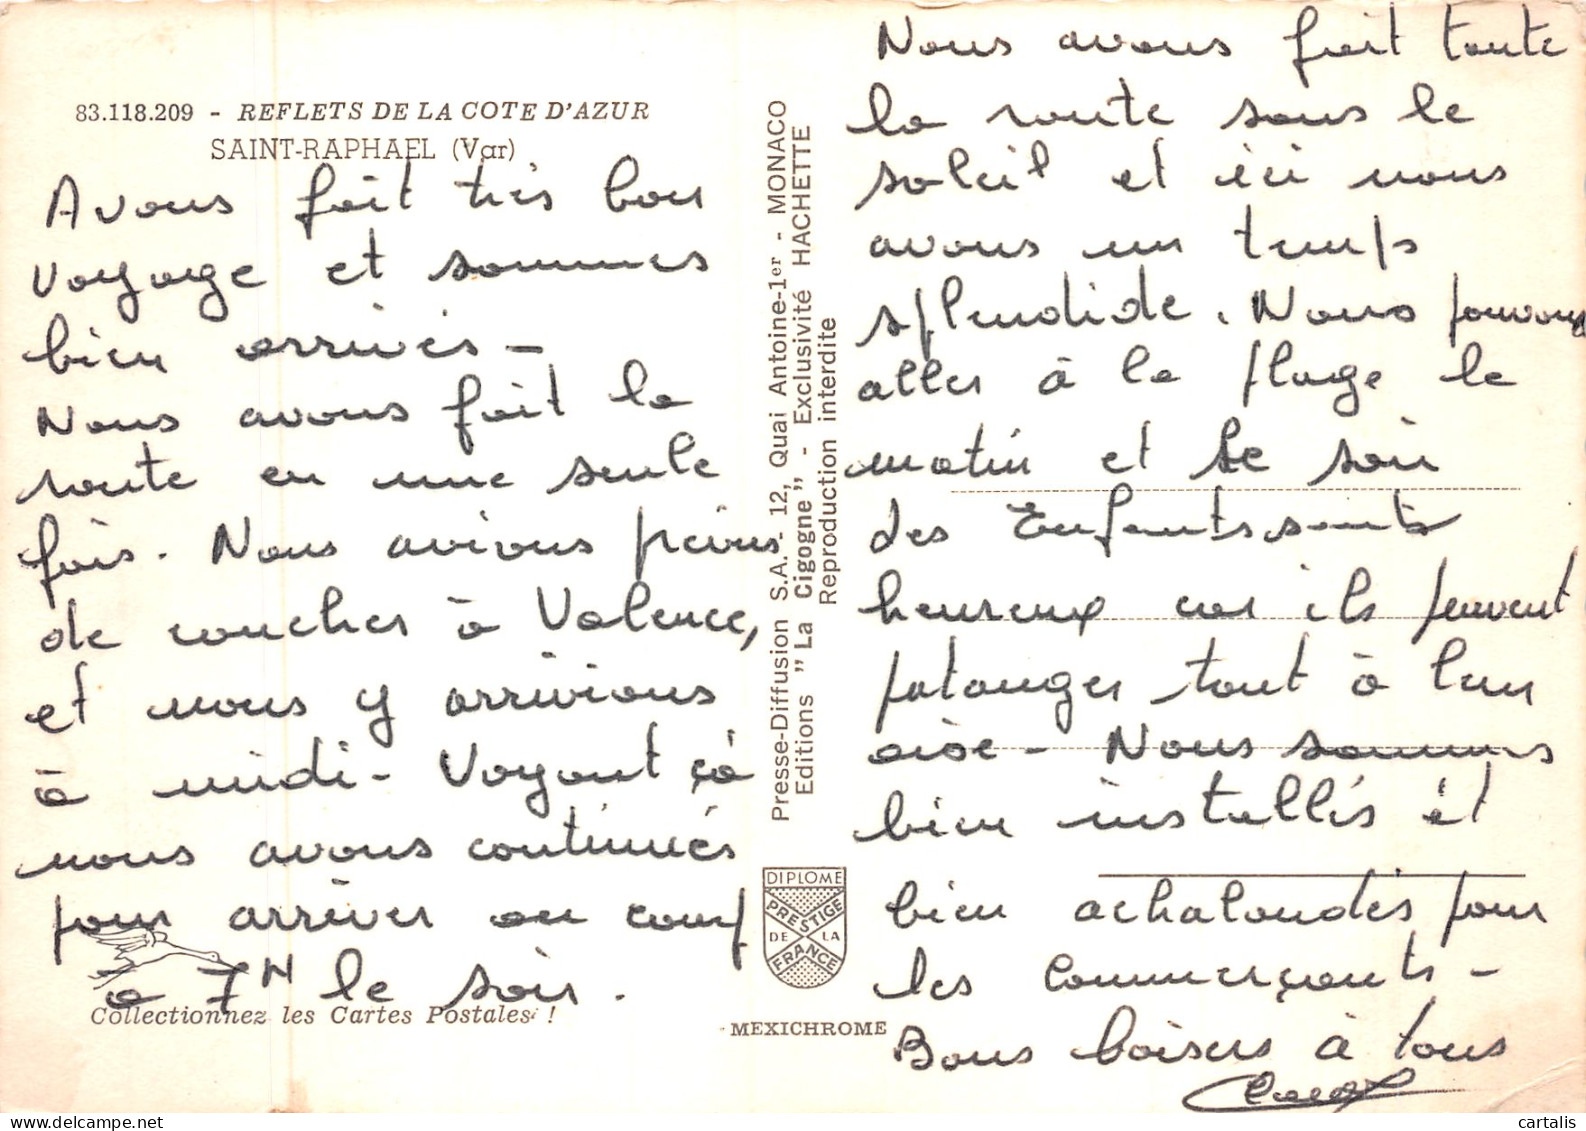 83.118.209 - REFLETS DE LA COTE D'AZUR
SAINT-RAPHAEL (Var)
Avons fait très bon
voyage et sommes
bien arrivés -
Nous avons fait la
route en une seule
fois. Nous avions prévus
de coucher à Valence,
et nous y arrivions
à midi - Voyant çà
nous avons continués
pour arriver au coup
à 7H le soir.
Collectionnez les Cartes Postales !
Presse-Diffusion S.A. - 12, Quai Antoine-1er - MONACO
Editions "La Cigogne" - Exclusivité HACHETTE
Reproduction interdite
DIPLOME
PRESTIGE
DE LA
FRANCE
MEXICHROME
Nous avons fait toute
la route sous le
soleil et ici nous
avons un temps
splendide. Nous pouvons
aller à la plage le
matin et le soir
des Enfants sont
heureux car ils peuvent
patauger tout à leur
aise - Nous sommes
bien installés et
bien achalandés pour
les commerçants -
Bons baisers à tous
cartalis